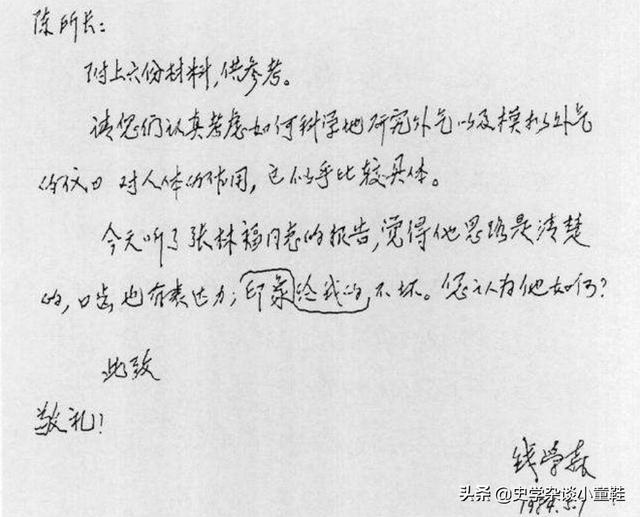 陈所长：
附上六份材料，供参考。
请您们认真考虑如何科学地研究外气以及模拟外气
的仪口 对人体的作用，这似乎比较具体。
今天听了张林福同志的报告，觉得他思路是清楚
的，口齿也有表达力；印象给我的，不坏。您认为他如何？
此致
敬礼！
钱学森
1984.5.1
头条 @史学杂谈小董鞋